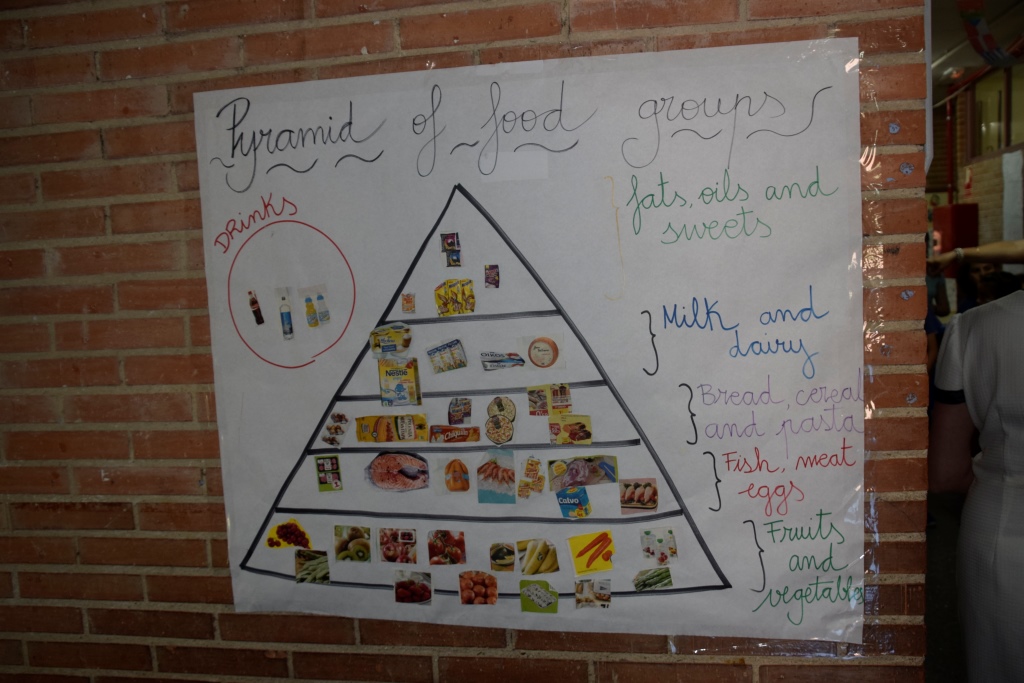 Pyramid of food groups
DRINKS
fats, oils and
sweets
Milk and
dairy
Bread, cereal
and pasta
Fish, meat
eggs
Fruits
and
vegetables
Nestle
Calvo